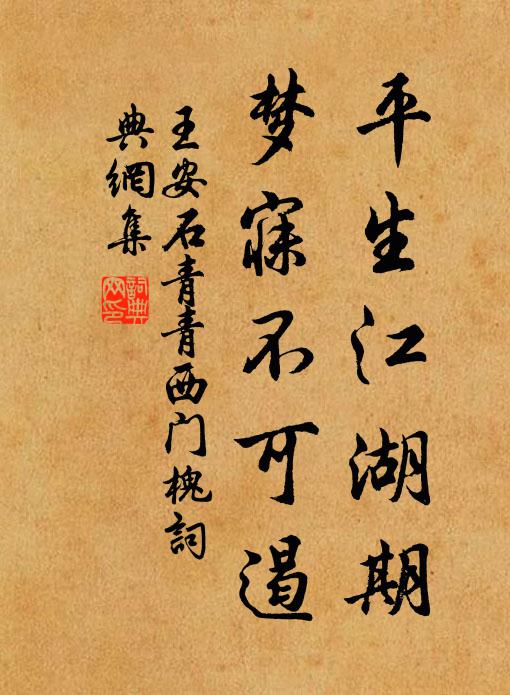 平生江湖期
梦寐不可遏
王安石青青西门槐詞
典網集
詞典網印